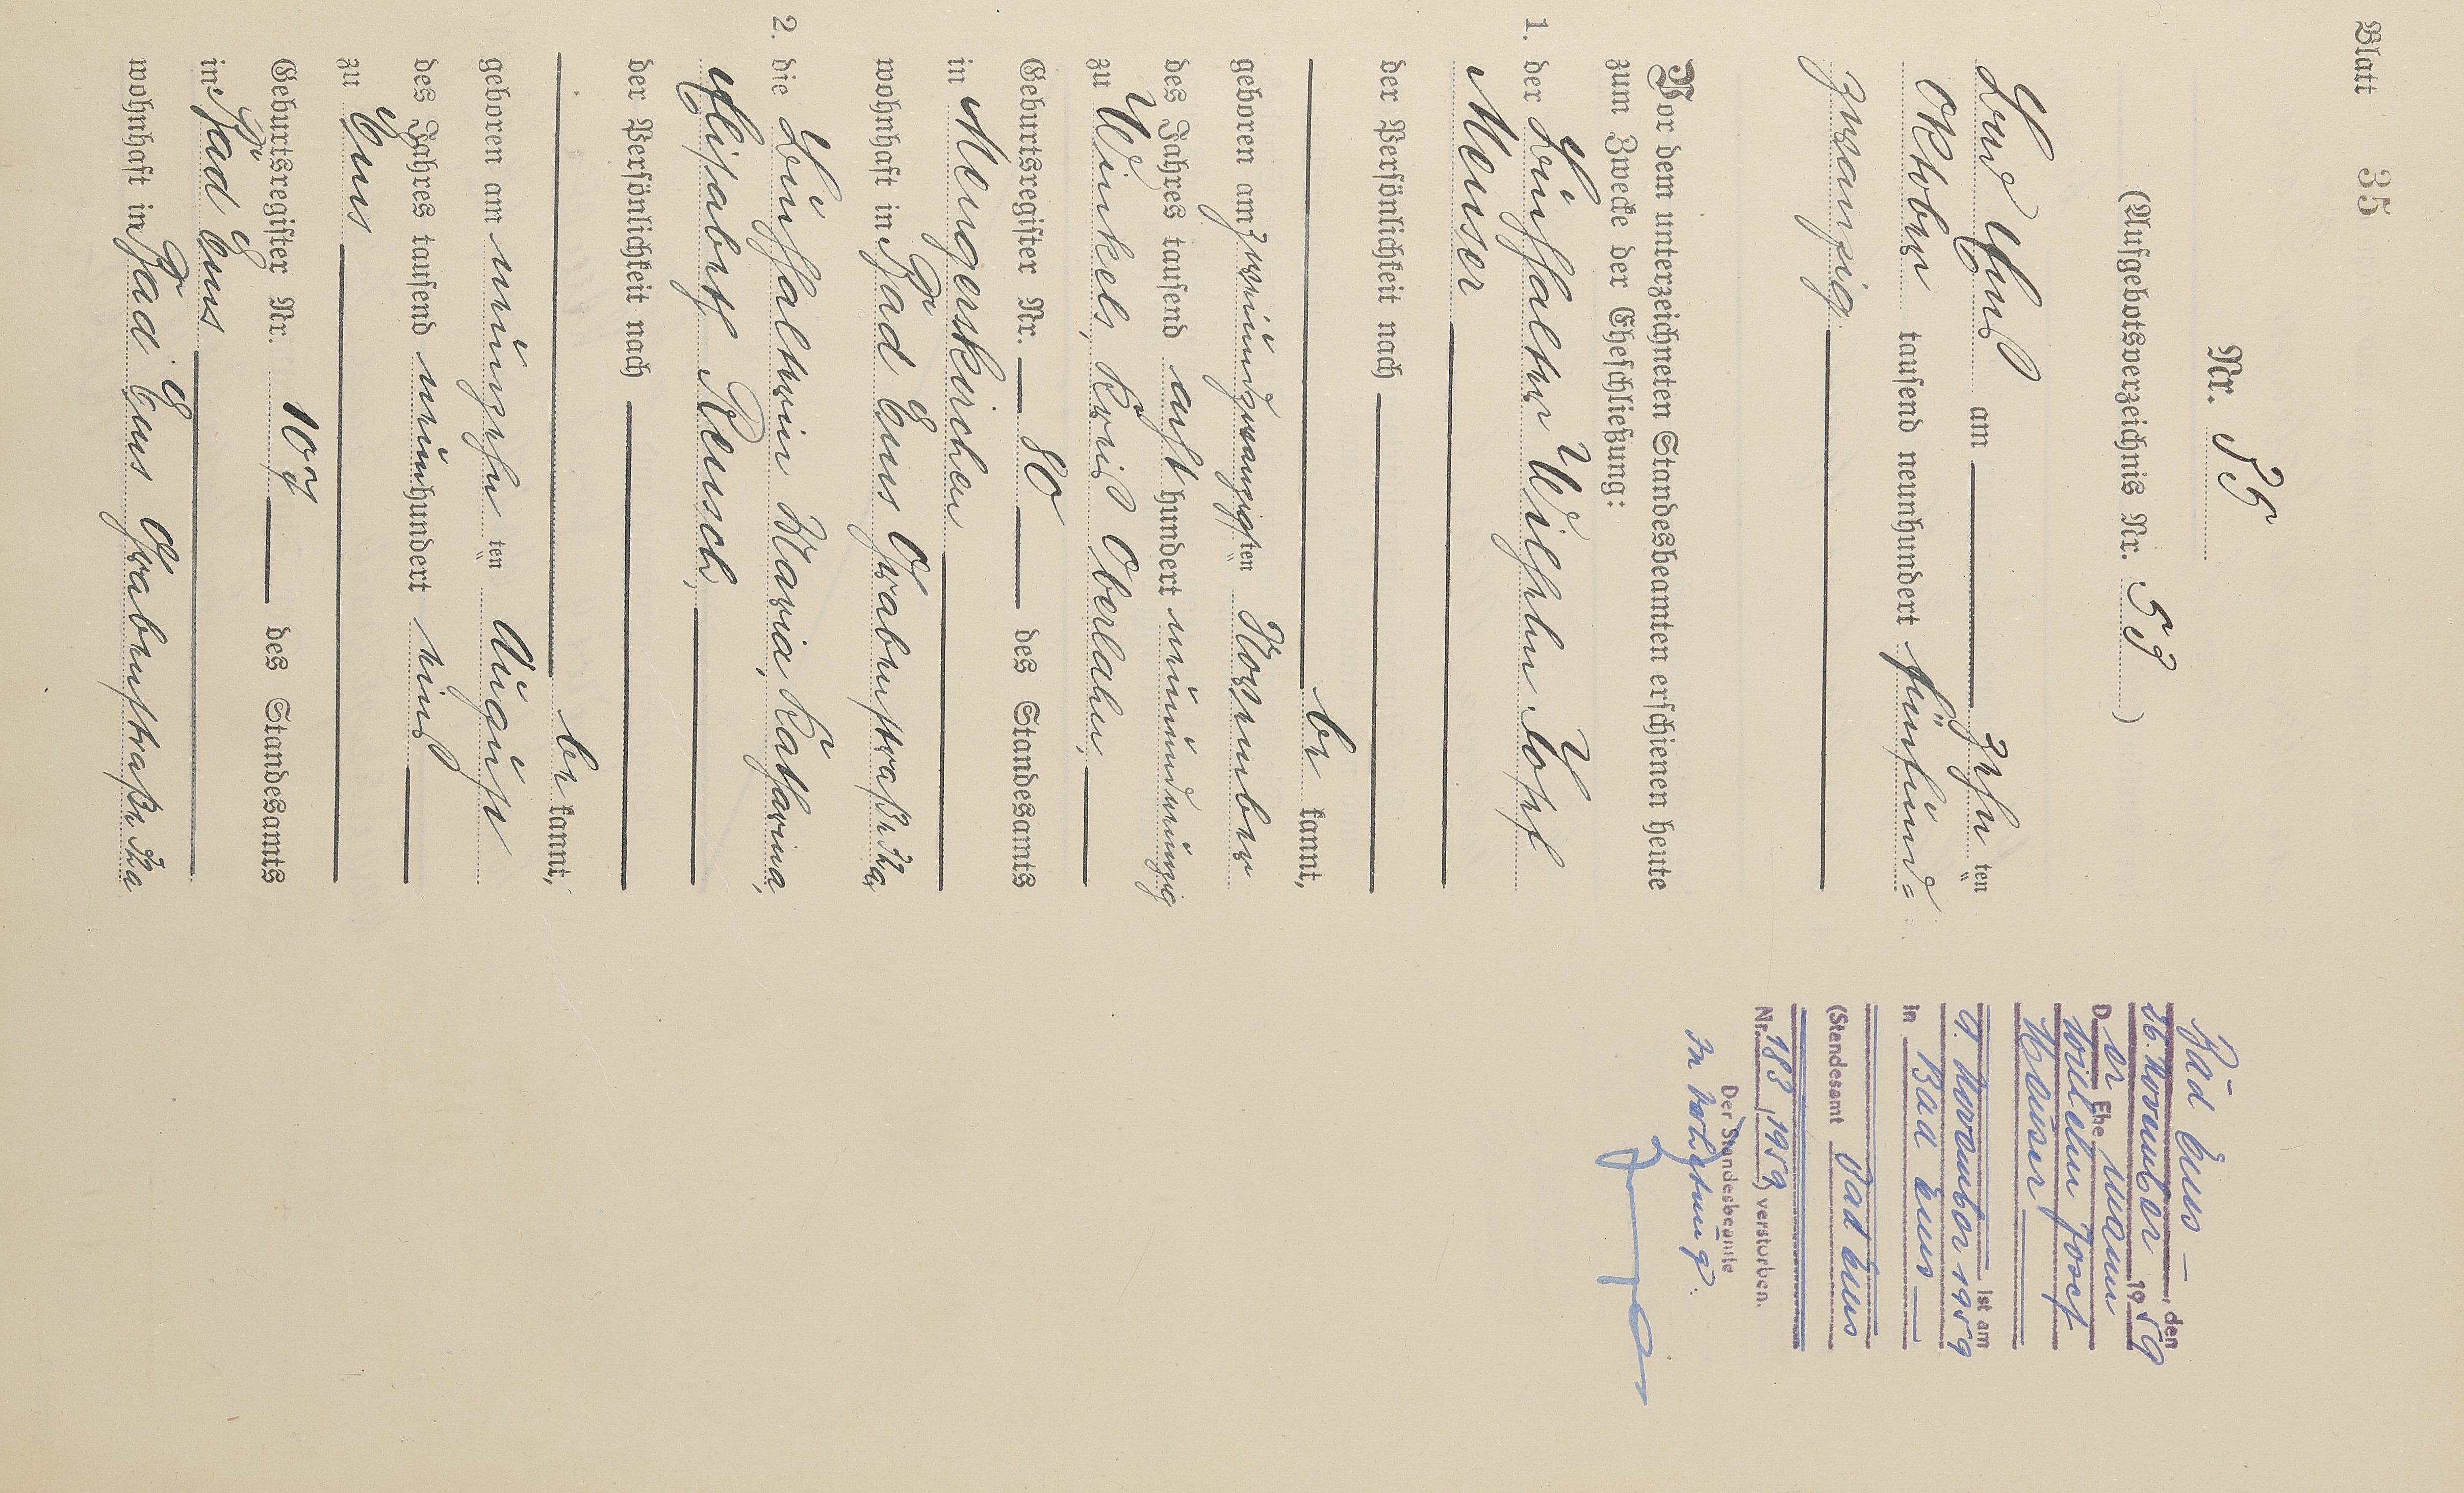 Blatt 35
Nr. 35
(Aufgebotsverzeichnis Nr. 59)
Bad Ems am zehn ten
Oktober tausend neunhundert fünfund=
zwanzig
Vor dem unterzeichneten Standesbeamten erschienen heute
zum Zwecke der Eheschließung:
1. der Buchhalter Wilhelm Josef
Meuser
der Persönlichkeit nach
be kannt,
geboren am zweiundzwanzigsten November
des Jahres tausend acht hundert neunundneunzig
zu Winkels, Kreis Oberlahn,
Geburtsregister Nr. 80 des Standesamts
in Mengerskirchen
wohnhaft in Bad Ems Grabenstraße
2. die Buchhalterin Maria, Katharina,
Elisabeth Reusch,
der Persönlichkeit nach
be kannt,
geboren am neunzehn ten August
des Jahres tausend neunhundert eins
zu Ems
Geburtsregister Nr. 107 des Standesamts
in Bad Ems
wohnhaft in Bad Ems Grabenstraße
Bad Ems, den
26. November 1959
D er Ehe mann
Wilhelm Josef
Meuser
ist am
November 1959
in Bad Ems
(Standesamt Bad Ems
Nr. 183/1959) verstorben.
Der Standesbeamte
In Vertretung: